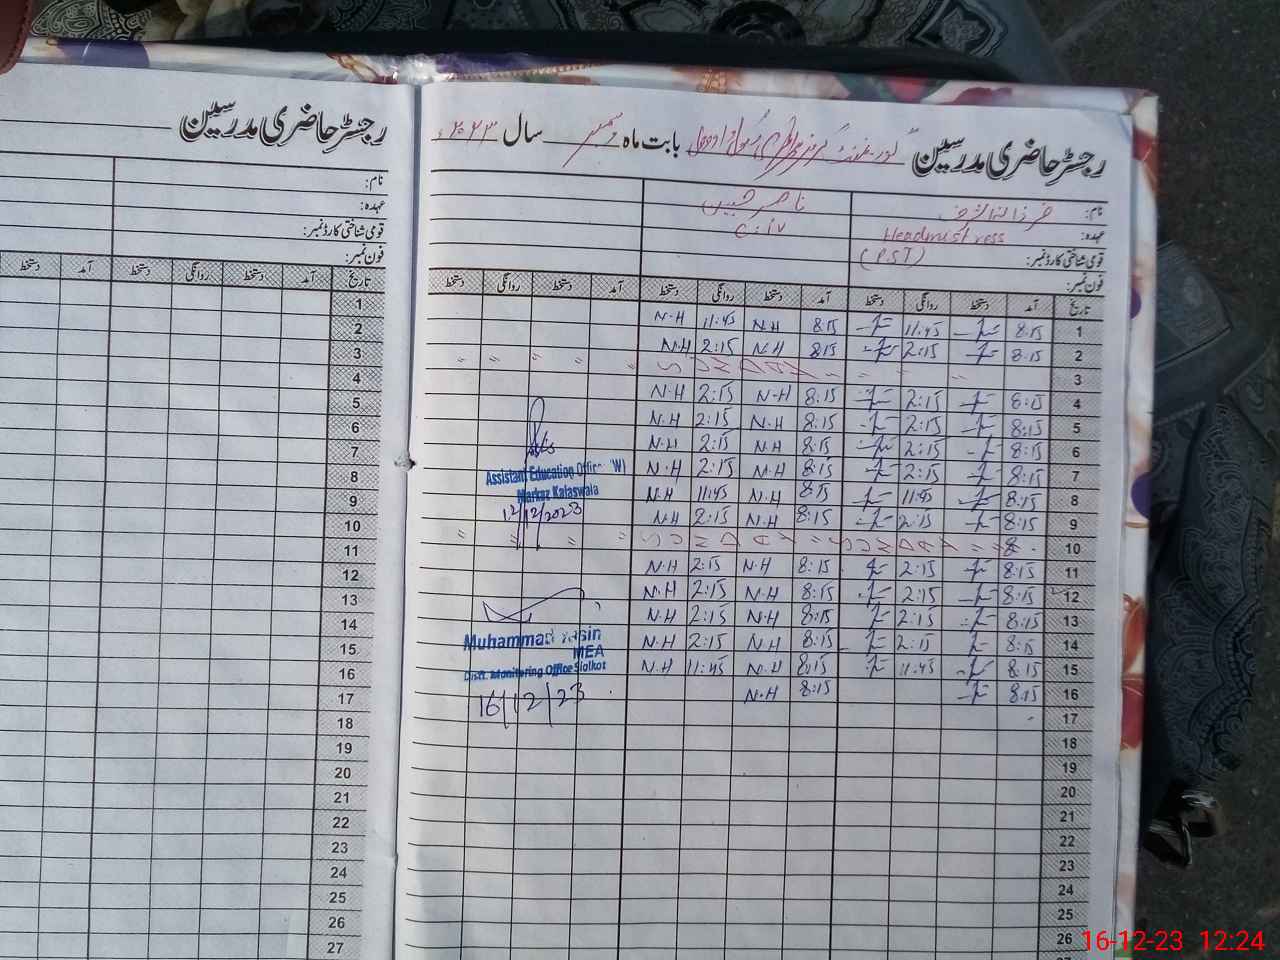 رجسٹر حاضری مدرسین گورنمنٹ گرلز پرائمری بابت ماہ دسمبر سال ۲۰۲۳ء
نام: ناصر
عہدہ: Headmistress
قومی شناختی کارڈ نمبر: (PST)
فون نمبر:
تاریخ آمد دستخط روانگی دستخط آمد دستخط روانگی دستخط آمد دستخط روانگی دستخط
1 8:15 11:45 8:15 N.H 11:45 N.H
2 8:15 2:15 8:15 N.H 2:15 N.H
3 SUNDAY
4 8:15 2:15 8:15 N.H 2:15 N.H
5 8:15 2:15 8:15 N.H 2:15 N.H
6 8:15 2:15 8:15 N.H 2:15 N.H
7 8:15 2:15 8:15 N.H 2:15 N.H
8 8:15 11:45 8:15 N.H 11:45 N.H
9 8:15 2:15 8:15 N.H 2:15 N.H
10 SUNDAY SUNDAY
11 8:15 2:15 8:15 N.H 2:15 N.H
12 8:15 2:15 8:15 N.H 2:15 N.H
13 8:15 2:15 8:15 N.H 2:15 N.H
14 8:15 2:15 8:15 N.H 2:15 N.H
15 8:15 11:45 8:15 N.H 11:45 N.H
16 8:15 8:15 N.H
17
18
19
20
21
22
23
24
25
26
Assistant Education Officer (W)
Markaz Kalaswala
12/12/2023
Muhammad Yasin
MEA
Distt. Monitoring Office Sialkot
16/12/23
رجسٹر حاضری مدرسین
نام:
عہدہ:
قومی شناختی کارڈ نمبر:
فون نمبر:
تاریخ آمد دستخط روانگی دستخط آمد دستخط
1
2
3
4
5
6
7
8
9
10
11
12
13
14
15
16
17
18
19
20
21
22
23
24
25
26
27
16-12-23 12:24